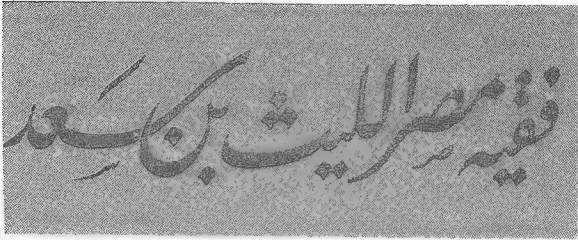 فقيه مصر الليث بن سعد